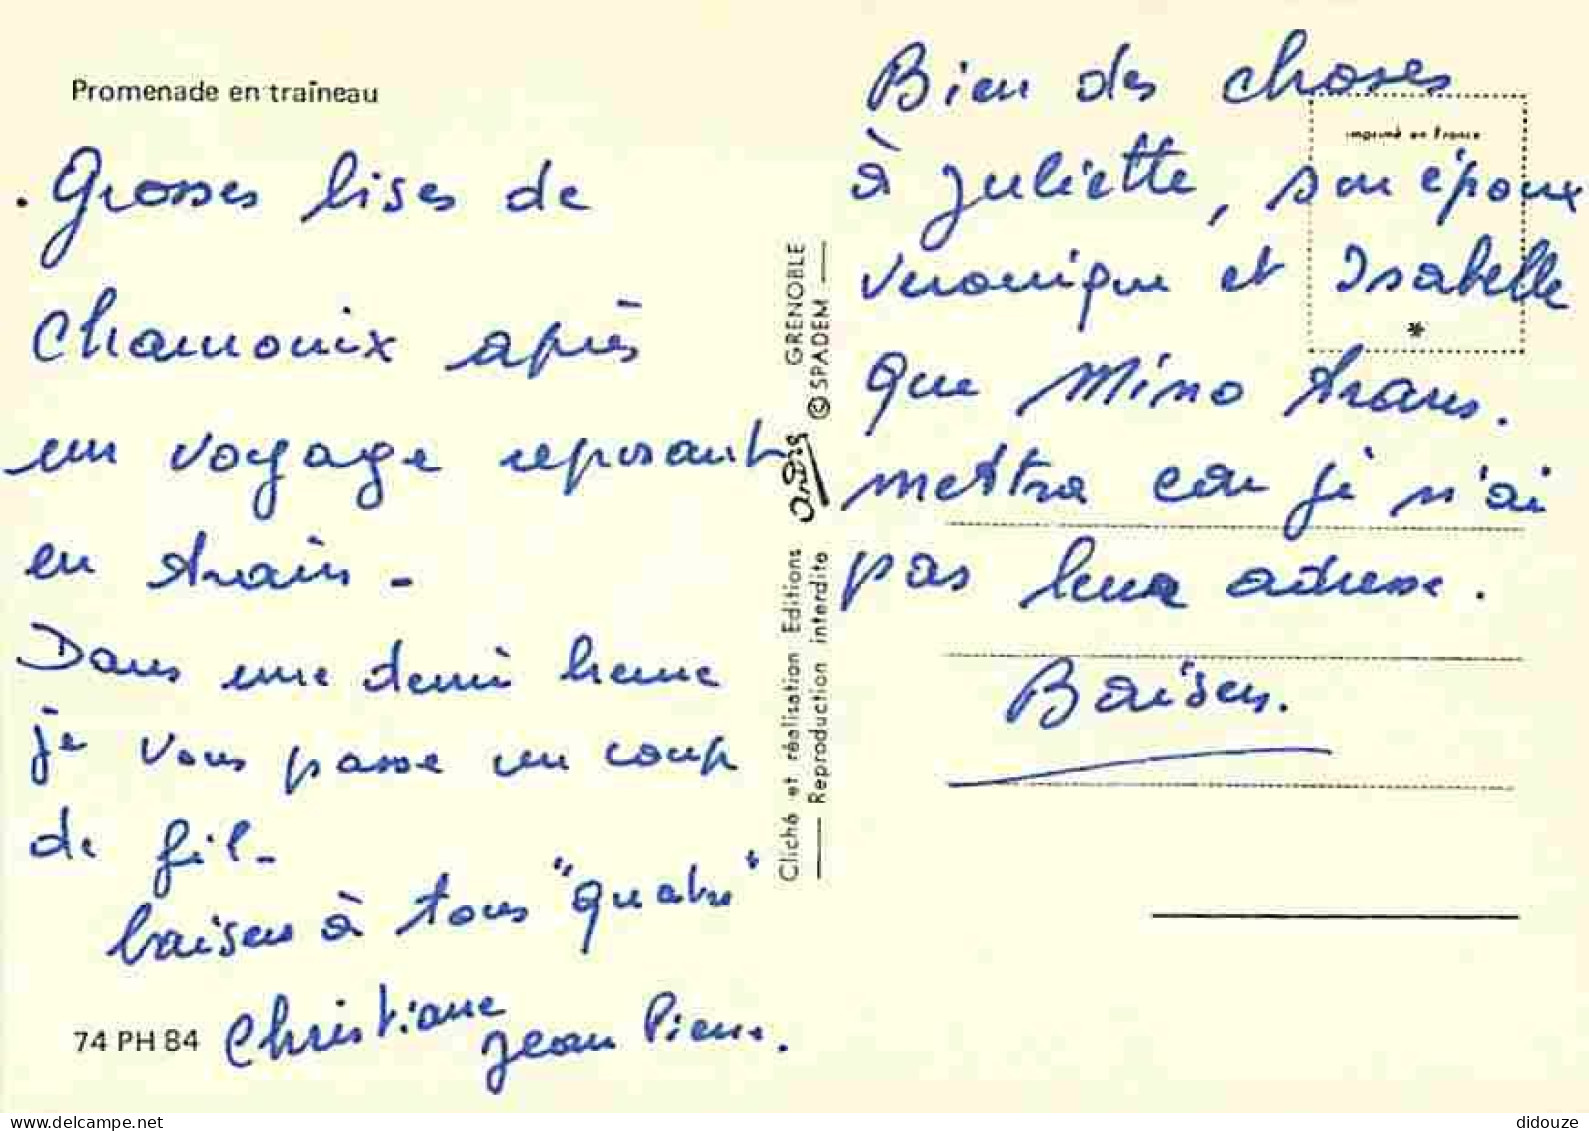 Promenade en traîneau
. Grosses bises de
Chamonix après
un voyage reposant
en train -
Dans une demi heure
je vous passe un coup
de fil -
baisers à tous "quatre"
Christiane Jean Pierre.
74 PH 84
Cliché et réalisation Editions andré GRENOBLE
Reproduction interdite © SPADEM
Bien des choses
imprimé en France
à Juliette, son époux
Veronique et Isabelle
*
que Mino trans.
mettra car je n'ai
pas leur adresse.
Baisers.
didouze @ delcampe.net